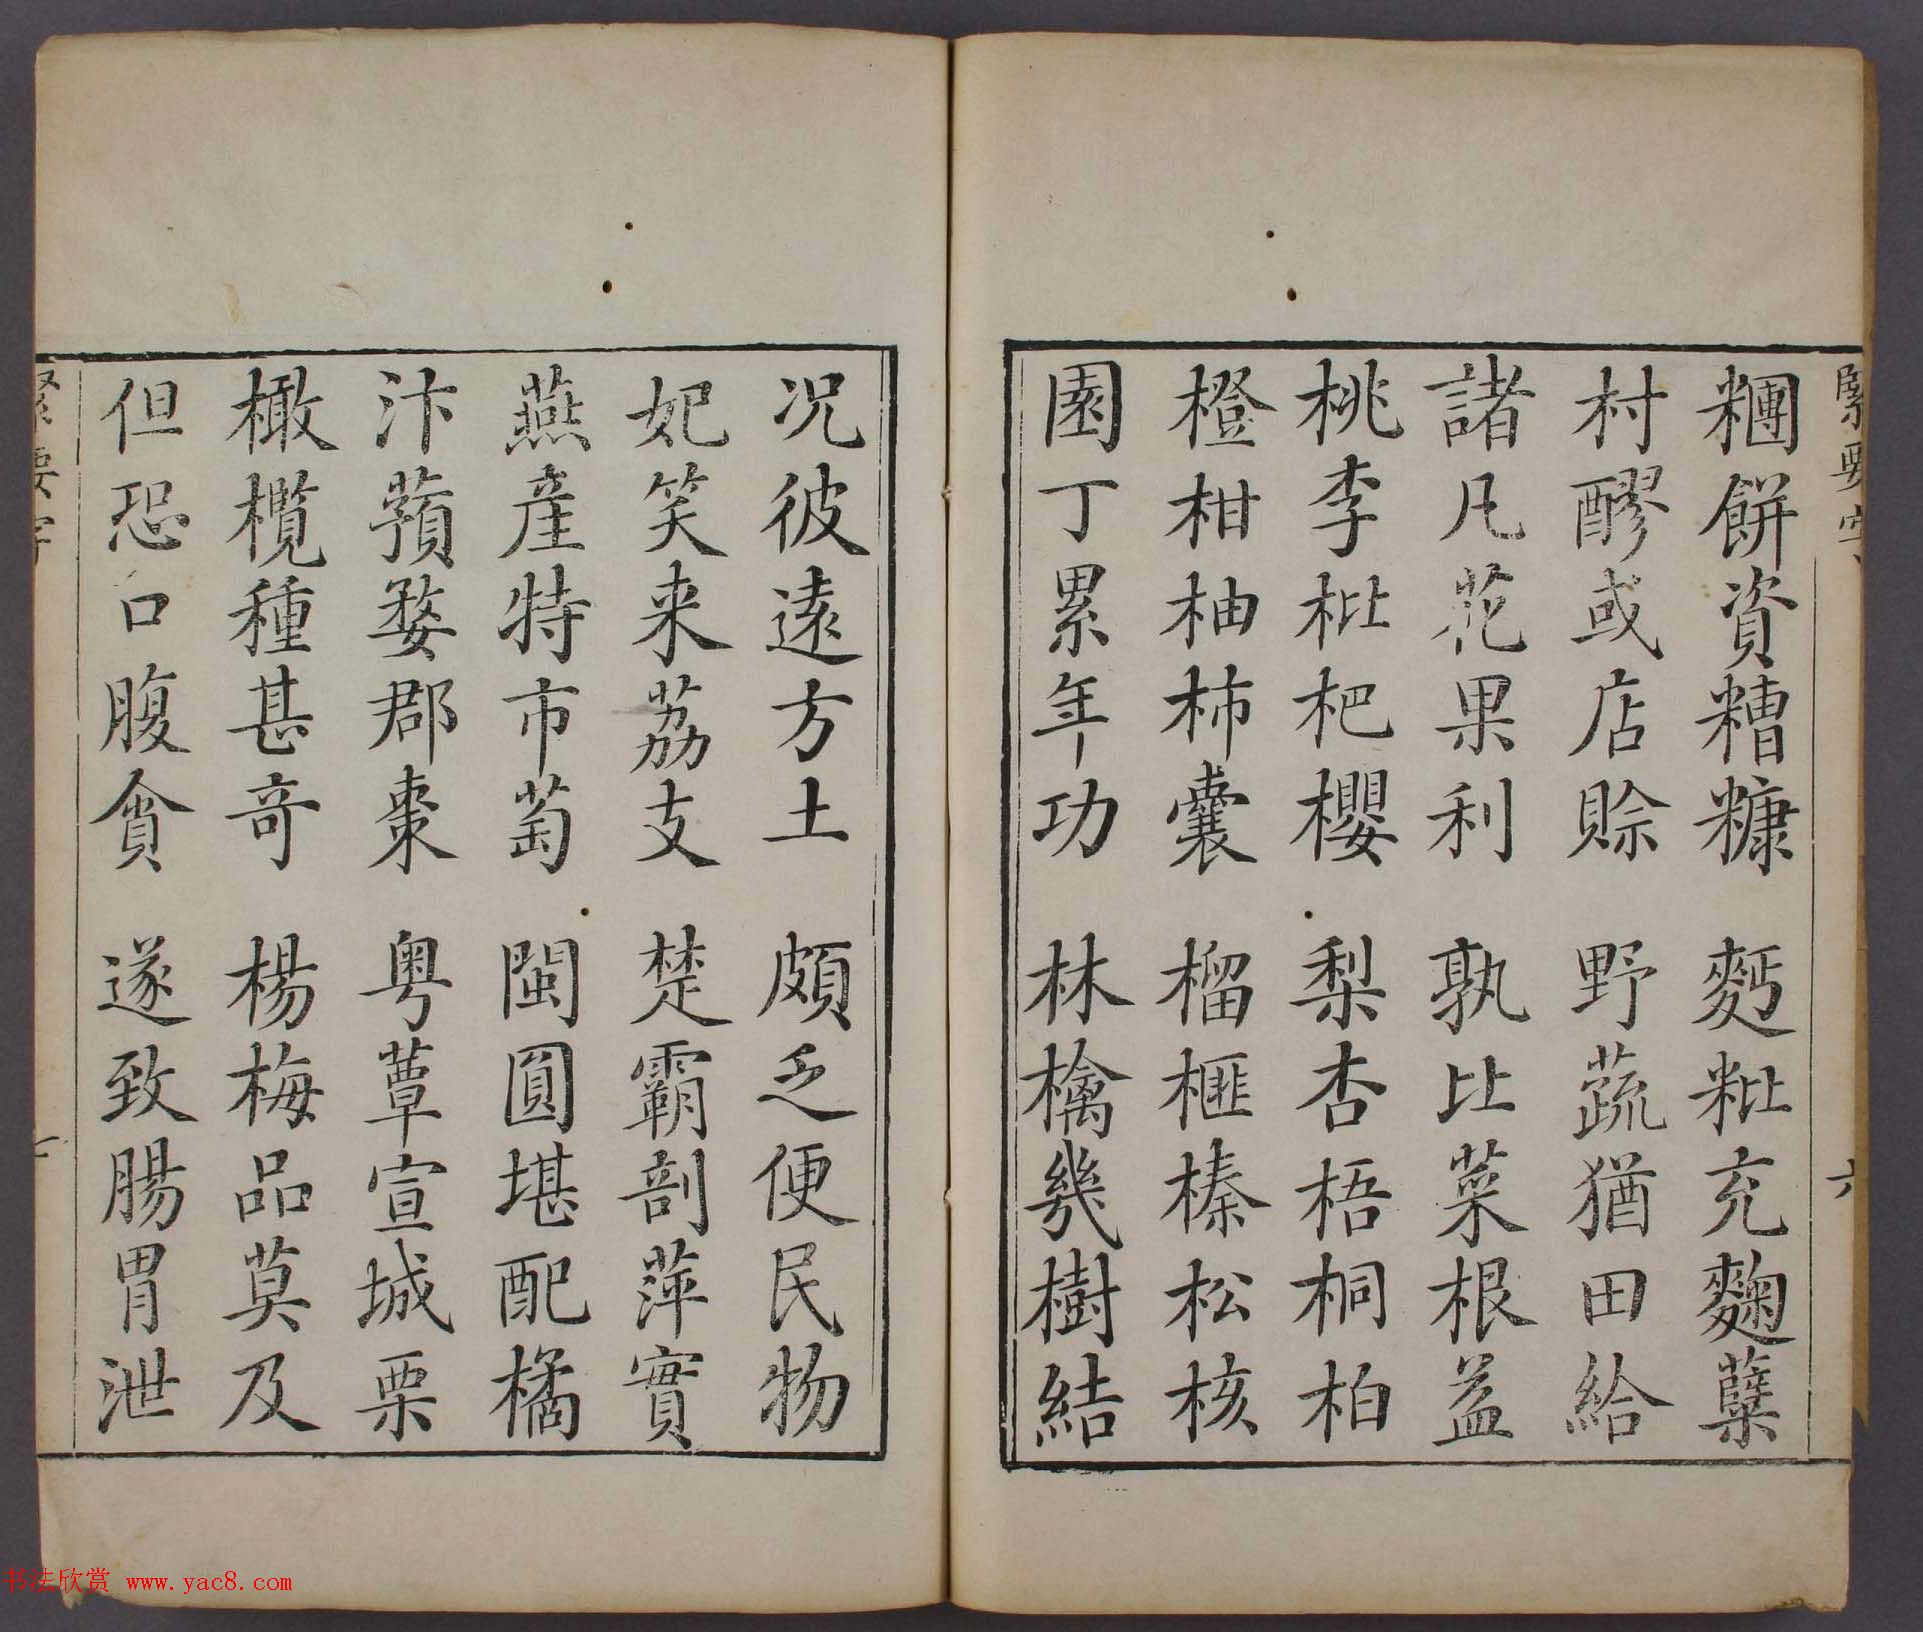 糰餅資糟糠 麫粃充麴糵
村醪或店賒 野蔬猶田給
諸凡花果利 孰比菜根益
桃李枇杷櫻 梨杏梧桐柏
橙柑柚柿囊 榴榧榛松核
園丁累年功 林檎幾樹結
况彼遠方土 頗乏便民物
妃笑来荔支 楚霸剖萍實
燕產特市萄 閩圓堪配橘
汴蘋婺郡棗 粤蕈宣城栗
橄欖種甚奇 楊梅品莫及
但恐口腹貪 遂致腸胃泄
六
七
书法欣赏 www.yac8.com